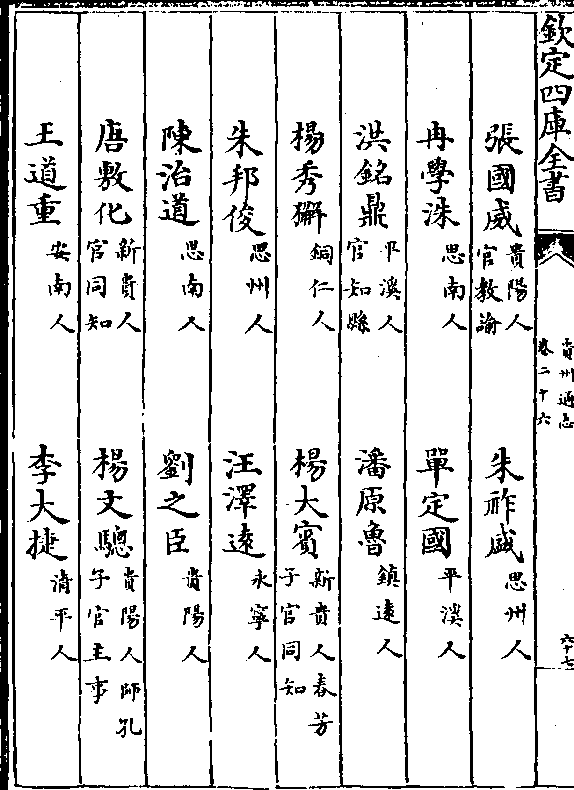 欽定四庫全書
貴州通志
卷二十六
六十七
張國威 貴陽人官教諭 朱祚盛 思州人
冉學洙 思南人 單定國 平溪人
洪銘鼎 平溪人官知縣 潘原魯 鎮遠人
楊秀獬 銅仁人 楊大賓 新貴人春芳子官同知
朱邦俊 思州人 汪澤遠 永寧人
陳治道 思南人 劉之臣 貴陽人
唐敷化 新貴人官同知 楊文驄 貴陽人師孔子官主事
王道重 安南人 李大捷 清平人